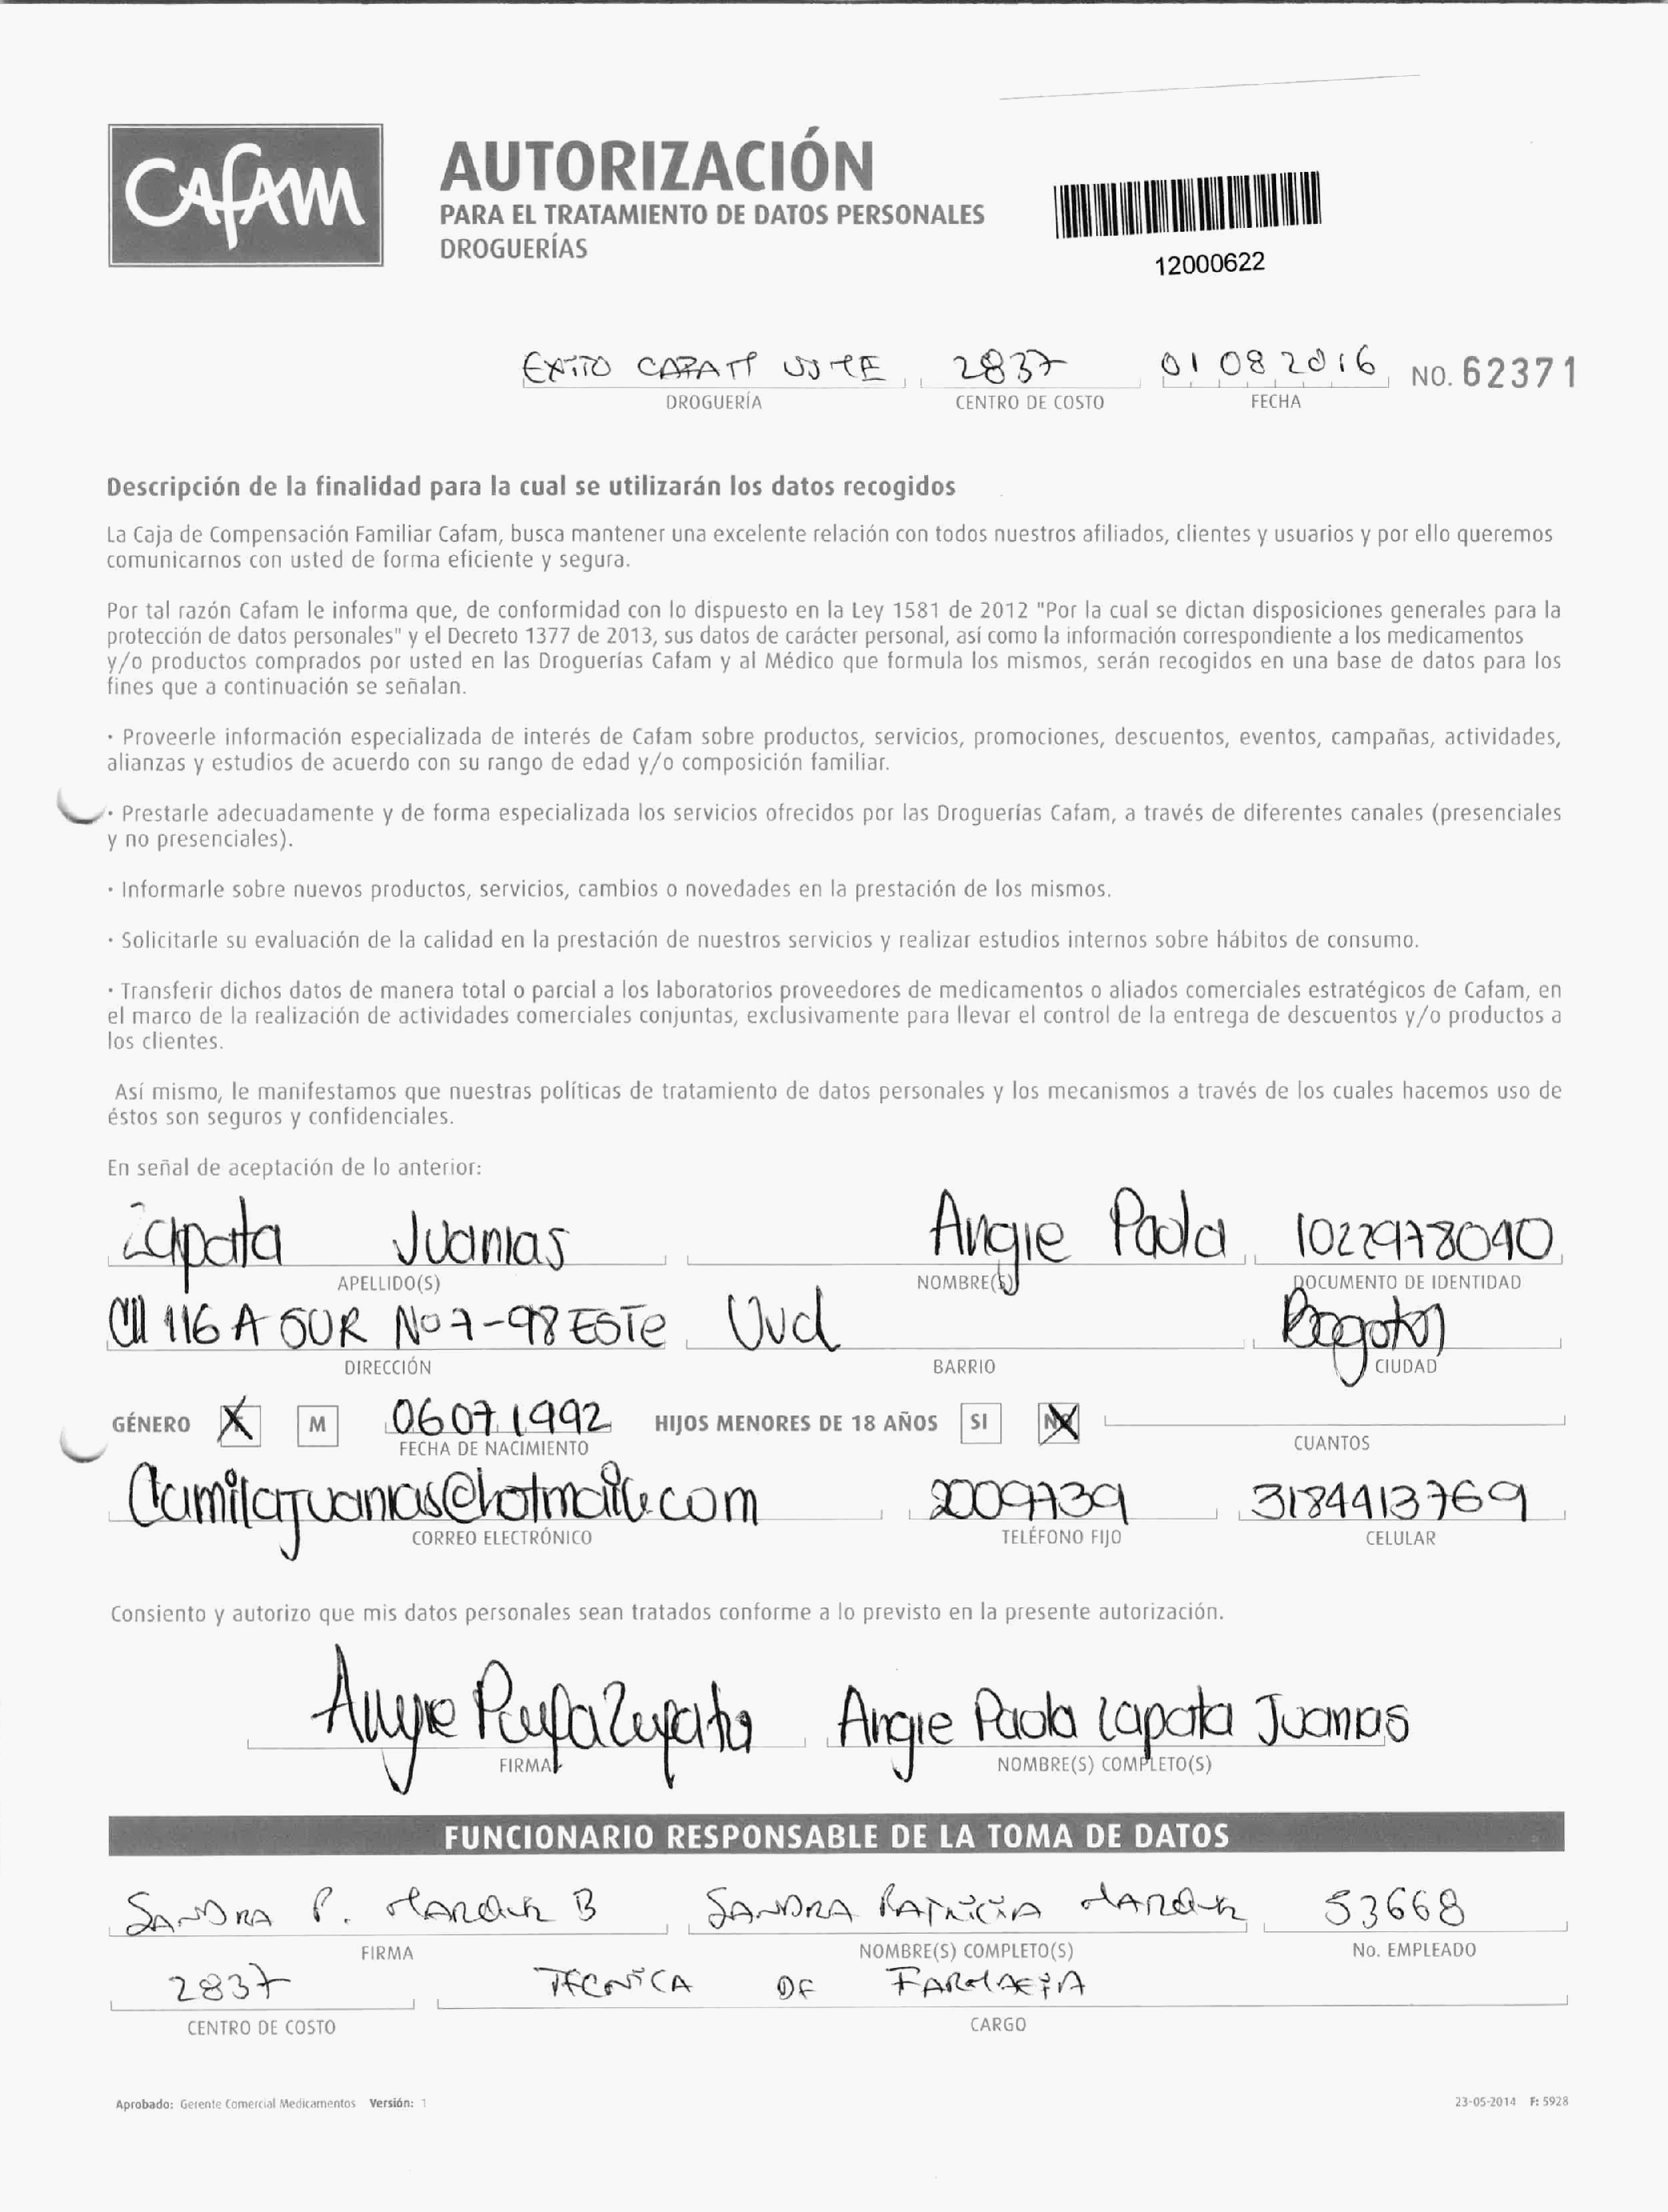 CAFAM
AUTORIZACIÓN
PARA EL TRATAMIENTO DE DATOS PERSONALES
DROGUERÍAS
12000622
EXITO 2837 01 08 2016 NO. 62371
DROGUERÍA CENTRO DE COSTO FECHA
Descripción de la finalidad para la cual se utilizarán los datos recogidos
La Caja de Compensación Familiar Cafam, busca mantener una excelente relación con todos nuestros afiliados, clientes y usuarios y por ello queremos
comunicarnos con usted de forma eficiente y segura.
Por tal razón Cafam le informa que, de conformidad con lo dispuesto en la Ley 1581 de 2012 "Por la cual se dictan disposiciones generales para la
protección de datos personales" y el Decreto 1377 de 2013, sus datos de carácter personal, así como la información correspondiente a los medicamentos
y/o productos comprados por usted en las Droguerías Cafam y al Médico que formula los mismos, serán recogidos en una base de datos para los
fines que a continuación se señalan.
· Proveerle información especializada de interés de Cafam sobre productos, servicios, promociones, descuentos, eventos, campañas, actividades,
alianzas y estudios de acuerdo con su rango de edad y/o composición familiar.
· Prestarle adecuadamente y de forma especializada los servicios ofrecidos por las Droguerías Cafam, a través de diferentes canales (presenciales
y no presenciales).
· Informarle sobre nuevos productos, servicios, cambios o novedades en la prestación de los mismos.
· Solicitarle su evaluación de la calidad en la prestación de nuestros servicios y realizar estudios internos sobre hábitos de consumo.
· Transferir dichos datos de manera total o parcial a los laboratorios proveedores de medicamentos o aliados comerciales estratégicos de Cafam, en
el marco de la realización de actividades comerciales conjuntas, exclusivamente para llevar el control de la entrega de descuentos y/o productos a
los clientes.
Así mismo, le manifestamos que nuestras políticas de tratamiento de datos personales y los mecanismos a través de los cuales hacemos uso de
éstos son seguros y confidenciales.
En señal de aceptación de lo anterior:
Zapata Juanias Angie Paola 1022978090
APELLIDO(S) NOMBRE(S) DOCUMENTO DE IDENTIDAD
Cll 116 A SUR No 7-98 ESTE Bogota
DIRECCIÓN BARRIO CIUDAD
GÉNERO M 06 07 1992 HIJOS MENORES DE 18 AÑOS SI NO
FECHA DE NACIMIENTO CUANTOS
2009739 3184413769
CORREO ELECTRÓNICO TELÉFONO FIJO CELULAR
Consiento y autorizo que mis datos personales sean tratados conforme a lo previsto en la presente autorización.
Angie Paola Zapata Angie Paola Zapata Juanias
FIRMA NOMBRE(S) COMPLETO(S)
FUNCIONARIO RESPONSABLE DE LA TOMA DE DATOS
SANDRA P. B SANDRA PATRICIA 53668
FIRMA NOMBRE(S) COMPLETO(S) No. EMPLEADO
2837 TECNICA DE FARMACIA
CENTRO DE COSTO CARGO
Aprobado: Gerente Comercial Medicamentos Versión: 1 23-05-2014 F: 5928